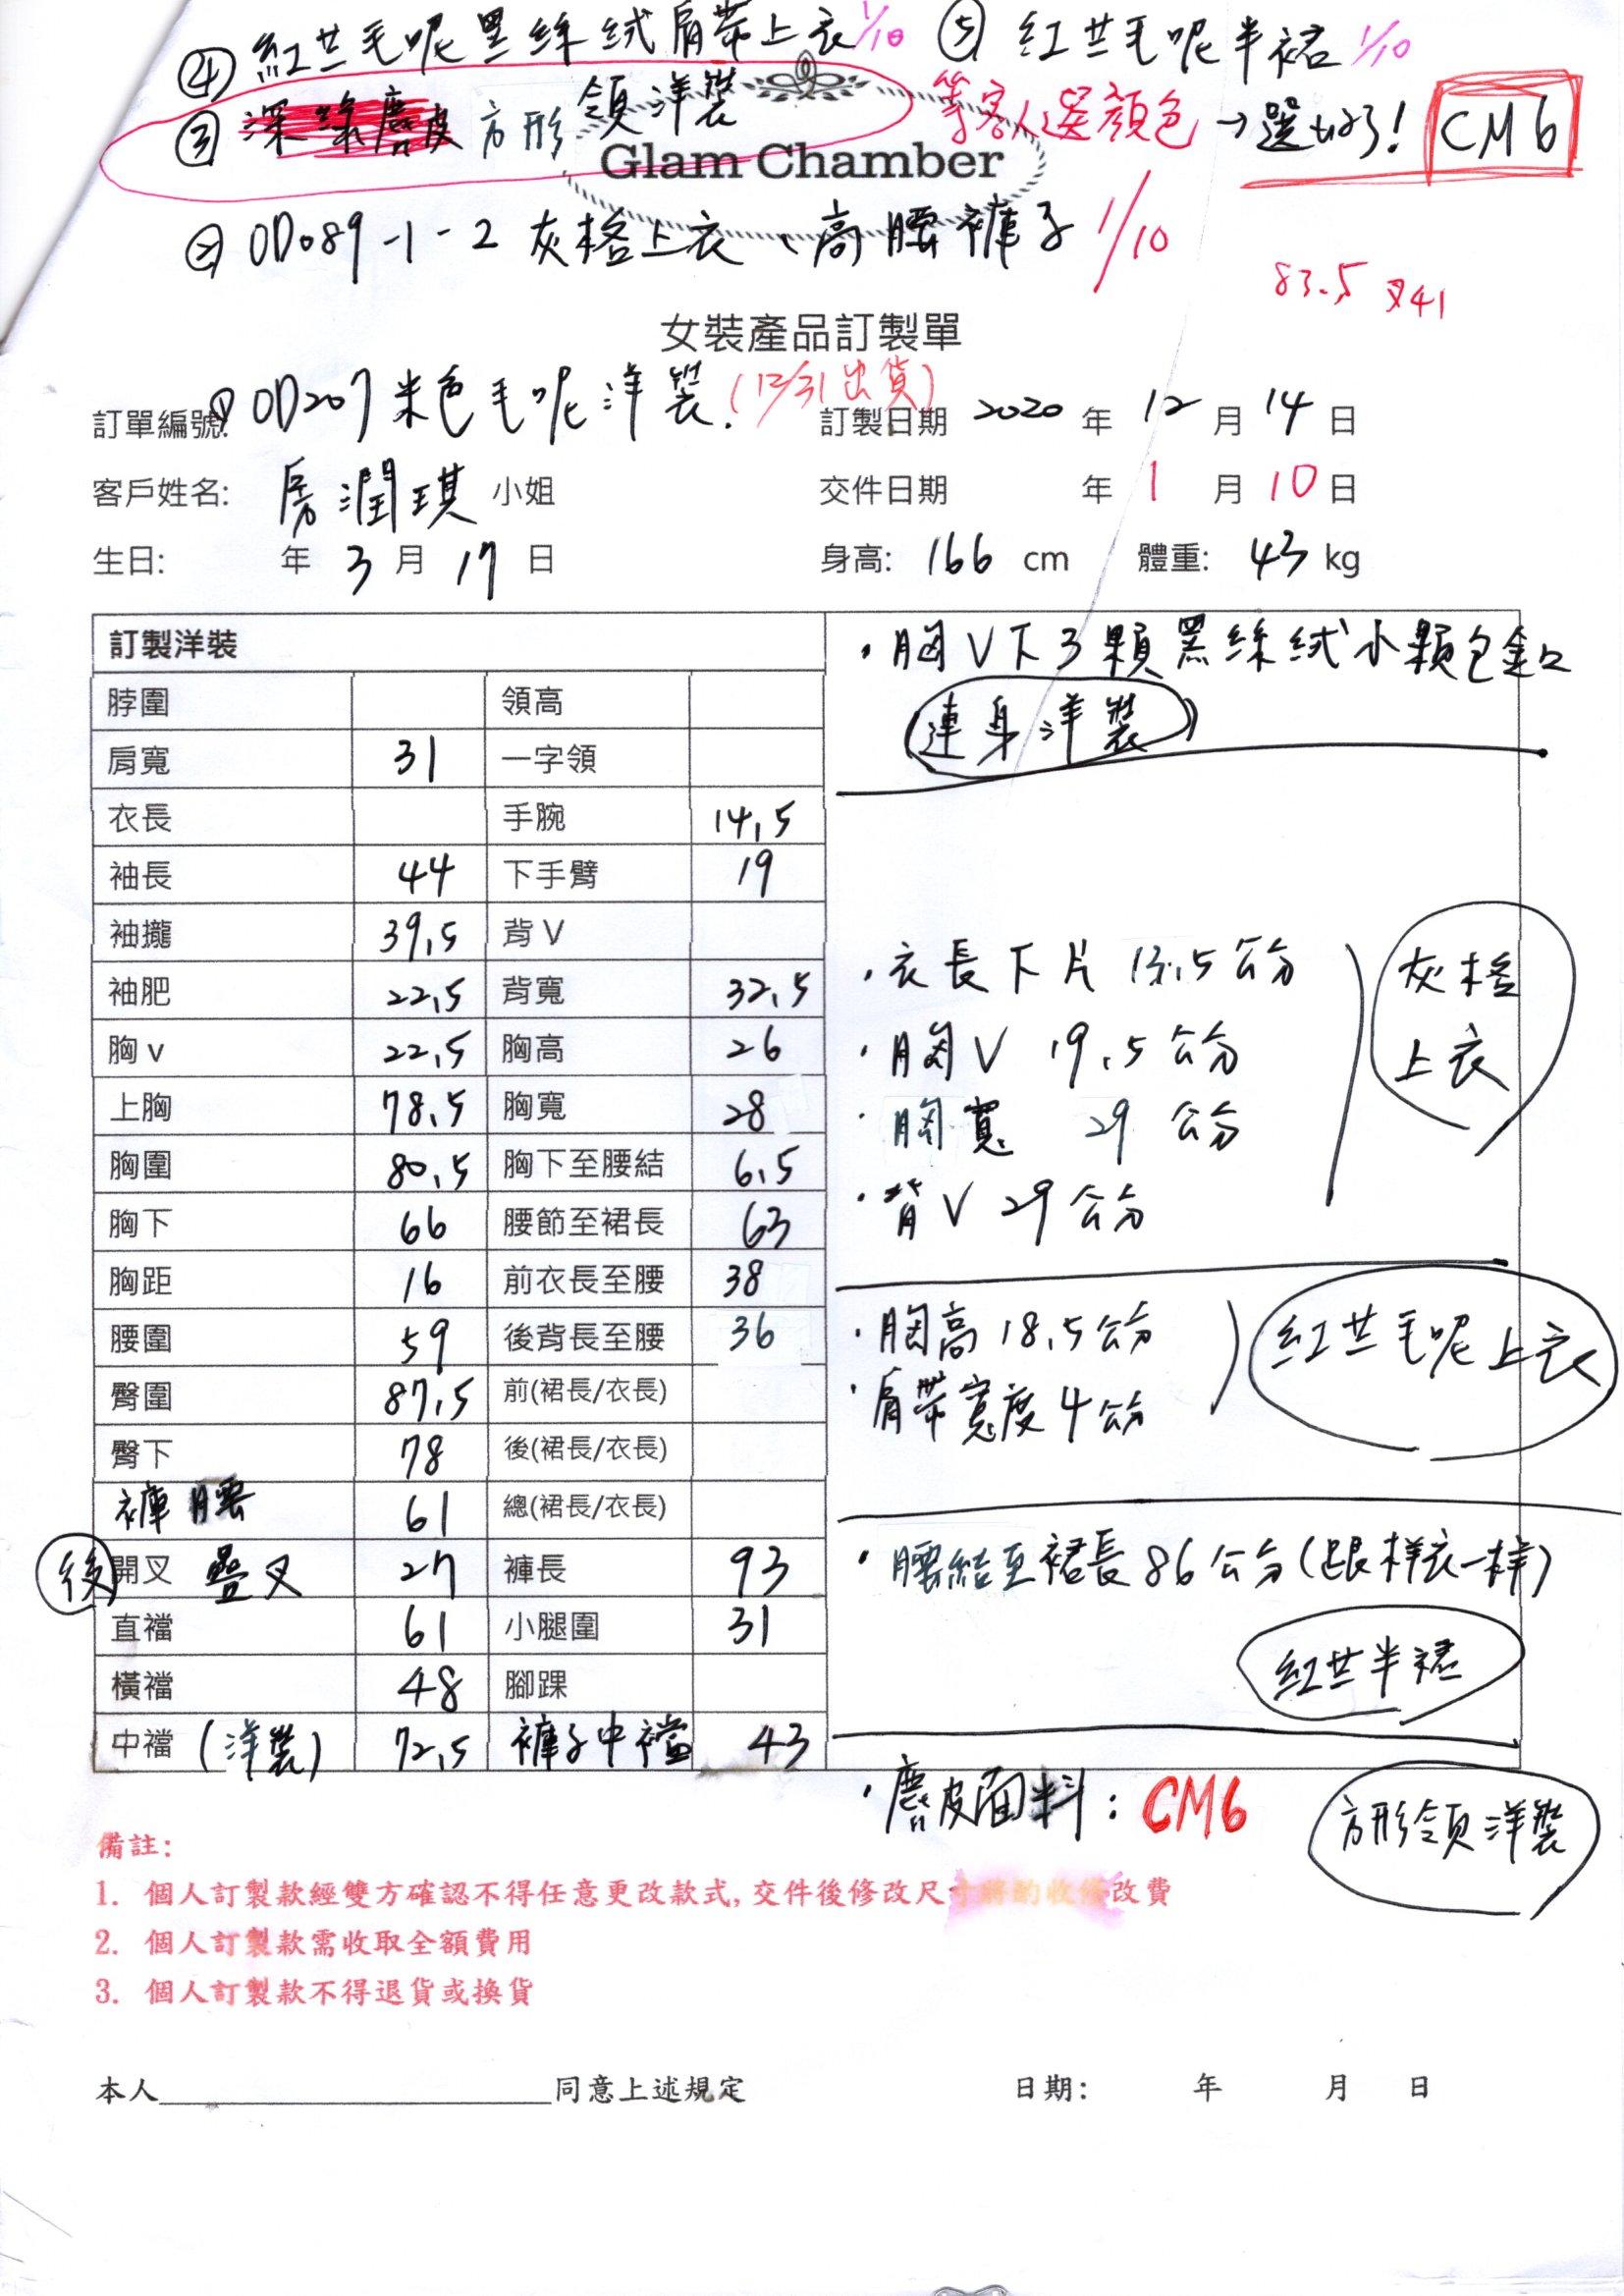 ④ 紅芸毛呢黑絲絨肩帶上衣 1/10 ⑤ 紅芸毛呢半裙 1/10
③ 深綠麂皮 方形領洋裝 等客人選顏色 → 選好了! CM6
Glam Chamber
② OD089-1-2 灰格上衣、高腰褲子 1/10
83.5 叉41
女裝產品訂製單
① OD207 米色毛呢洋裝. (12/31出貨)
訂單編號: 訂製日期 2020 年 12 月 14 日
客戶姓名: 房潤琪 小姐 交件日期 年 1 月 10 日
生日: 年 3 月 17 日 身高: 166 cm 體重: 43 kg
訂製洋裝
脖圍 領高
肩寬 31 一字領
衣長 手腕 14.5
袖長 44 下手臂 19
袖攏 39.5 背 V
袖肥 22.5 背寬 32.5
胸 v 22.5 胸高 26
上胸 78.5 胸寬 28
胸圍 80.5 胸下至腰結 6.5
胸下 66 腰節至裙長 63
胸距 16 前衣長至腰 38
腰圍 59 後背長至腰 36
臀圍 87.5 前(裙長/衣長)
臀下 78 後(裙長/衣長)
褲腰 61 總(裙長/衣長)
後 開叉 疊叉 27 褲長 93
直襠 61 小腿圍 31
橫襠 48 腳踝
中襠 (洋裝) 72.5 褲子中襠 43
· 胸V下3顆黑絲絨小顆包釦
連身洋裝
· 衣長下片 13.5公分
· 胸V 19.5公分
· 胸寬 29 公分
· 背V 29公分
灰格
上衣
· 胸高18.5公分
· 肩帶寬度4公分
紅芸毛呢上衣
· 腰結至裙長86公分(跟样衣一样)
紅芸半裙
· 麂皮面料: CM6
方形領洋裝
備註:
1. 個人訂製款經雙方確認不得任意更改款式, 交件後修改尺寸將酌收修改費
2. 個人訂製款需收取全額費用
3. 個人訂製款不得退貨或換貨
本人 同意上述規定 日期: 年 月 日